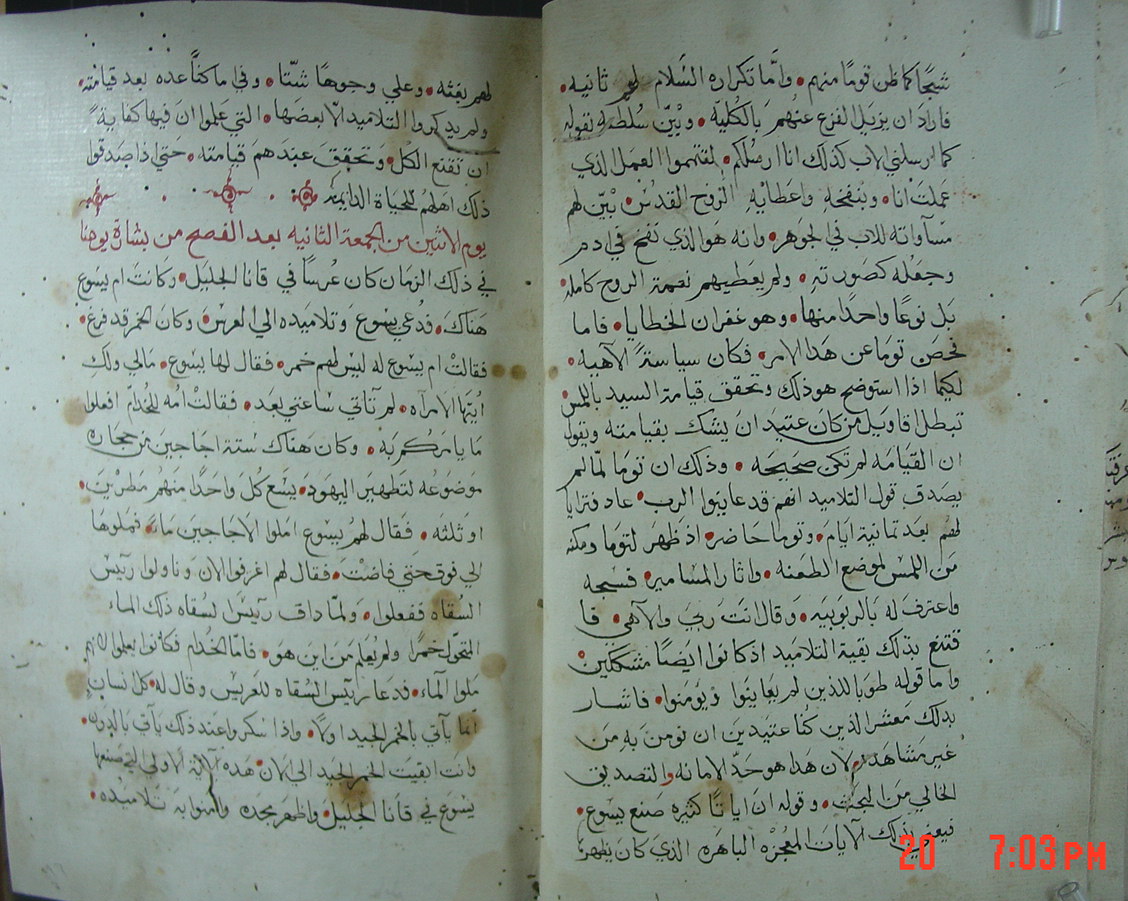 شبحًا كما ظن قومًا منهم • وامّا تكراره السَلام لهم ثانيه •
فاراد ان يزيل الفزع عنهم بالكليه • وبيّن سُلطته بقوله
كما ارسلني الاب كذلك انا ارسُلكم • لتتهموا العمل الذي
عملت انا • وبنفخه واعطايه الروح القدس • بيّن لهم
مساواته للاب في الجوهر • وانه هو الذي نفخ في ادم
وجعله كصورته • ولم يعطيهم نعمة الروح كامله
بَل نوعًا واحدًا منها • وهو غفران الخطايا • فاما
فحص توما عن هدا الامر • فكان سياسةً الاهيه •
لكيما اذا استوضح هو ذلك وتحقق قيامة السيد باللمس
تبطل اقاويل من كان عتيد ان يشك بقيامته ويقول
ان القيامه لم تكن صحيحه • وذلك ان توما لمّا لم
يصدق قول التلاميد انهم قد عاينوا الرب • عاد فترايا
لهم بعد تمانية ايام • وتوما حاضر • اذ ظهر لتوما ومكنه
من اللمس لموضع الطعنه • واثار المسامير • فسبحه
واعترف له بالربوبيه • وقال انت ربي والاهي • فا
قتنع بذلك بقية التلاميد اذ كانوا ايضًا متشككين •
واما قوله طوبا للذين لم يعاينوا ويومنوا • فاشار
بدلك معشر الذين كنا عتيدين ان نومن به من
غير مشاهده • لان هدا هو حدّ الامانه والتصديق
الخالي من البحث • وقوله ان اياتًا كثيره صنع يسوع •
فيعني بذلك الايات المعجزه الباهره الذي كان يظهر
لهم بغته • وعلي وجوهًا شتّا • وفي ما كناعده بعد قيامته •
ولم يدكروا التلاميد الا بعضها • التي علموا ان فيها كفايةً
ان تقنع الكل • وتحقق عندهم قيامته • حتي اذا صدقوا
ذلك اهلهُم للحياة الدايمه
يوم الاثنين من الجمعة الثانيه بعد الفصح من بشارة يوحنا
في ذلك الزمان كان عُرسًا في قانا الجليل • وكانت ام يسوع
هناك • فدُعي يسوع وتلاميده الي العرس • وكان الخمر قد فرغ •
فقالت ام يسوع له ليس لهم خمر • فقال لها يسوع • مالي ولك
ايتها الامراه • لم تاتي ساعتي بعد • فقالت امه للخدام افعلوا
ما يامركم به • وكان هناك ستة اجاجين من حجاره
موضوعه لتطهير اليهود • يسع كل واحدًا منهم مطرين •
او ثلثه • فقال لهم يسوع املوا الاجاجين ماء • فملوها
الي فوق حتي فاضت • فقال لهم اغرفوا الان وناولوا رييس
السقاه ففعلوا • ولمّا داق رييس السقاه ذلك الماء
المتحول خمرًا ولم يعلم من اين هو • فامّا الخدام فكانوا يعلموا لانهم
ملوا الماء • فدعا رييس السقاه للعريس وقال له • كل انسان
انما ياتي بالخمر الجيد اولًا • واذا سكروا عند ذلك ياتي بالدون •
وانت ابقيت الخمر الجيد الي الان • هده الاية الاولي التي صنعها
يسوع في قانا الجليل • واظهر مجده وامنوا به تلاميده •
20 7:03 PM